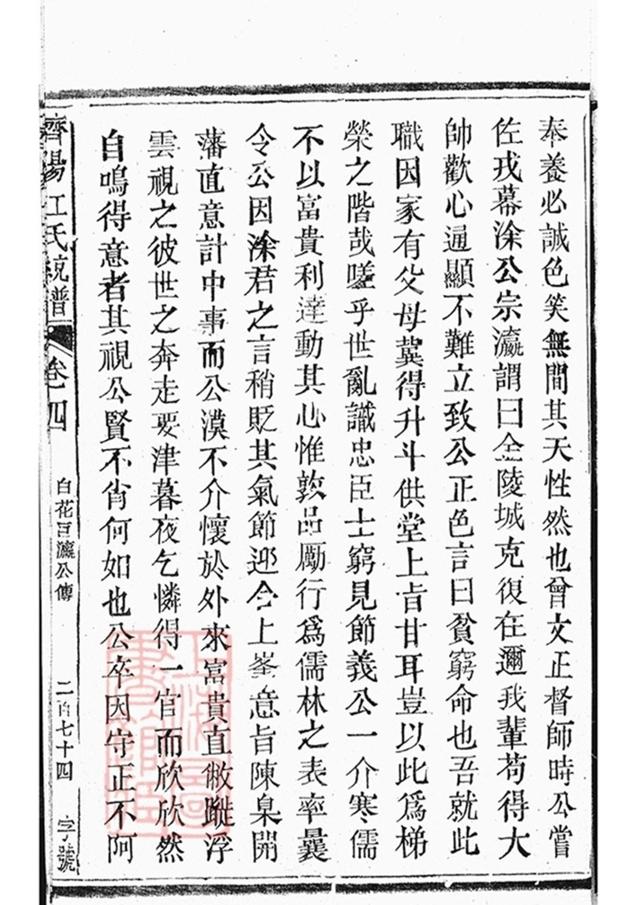 奉養必誠色笑無間其天性然也曾文正督師時公嘗
佐戎幕涂公宗瀛謂曰金陵城克復在邇我輩苟得大
帥歡心通顯不難立致公正色言曰貧窮命也吾就此
職因家有父母冀得升斗供堂上旨甘耳豈以此爲梯
榮之階哉嗟乎世亂識忠臣士窮見節義公一介寒儒
不以富貴利達動其心惟敦品勵行爲儒林之表率曩
令公因涂君之言稍貶其氣節迎合上峯意旨陳臬開
藩直意計中事而公漠不介懷於外來富貴直敝蹝浮
雲視之彼世之奔走要津暮夜乞憐得一官而欣欣然
自鳴得意者其視公賢不肖何如也公卒因守正不阿
濟陽江氏統譜 卷四 白花 瀛公傳 二百七十四 字號